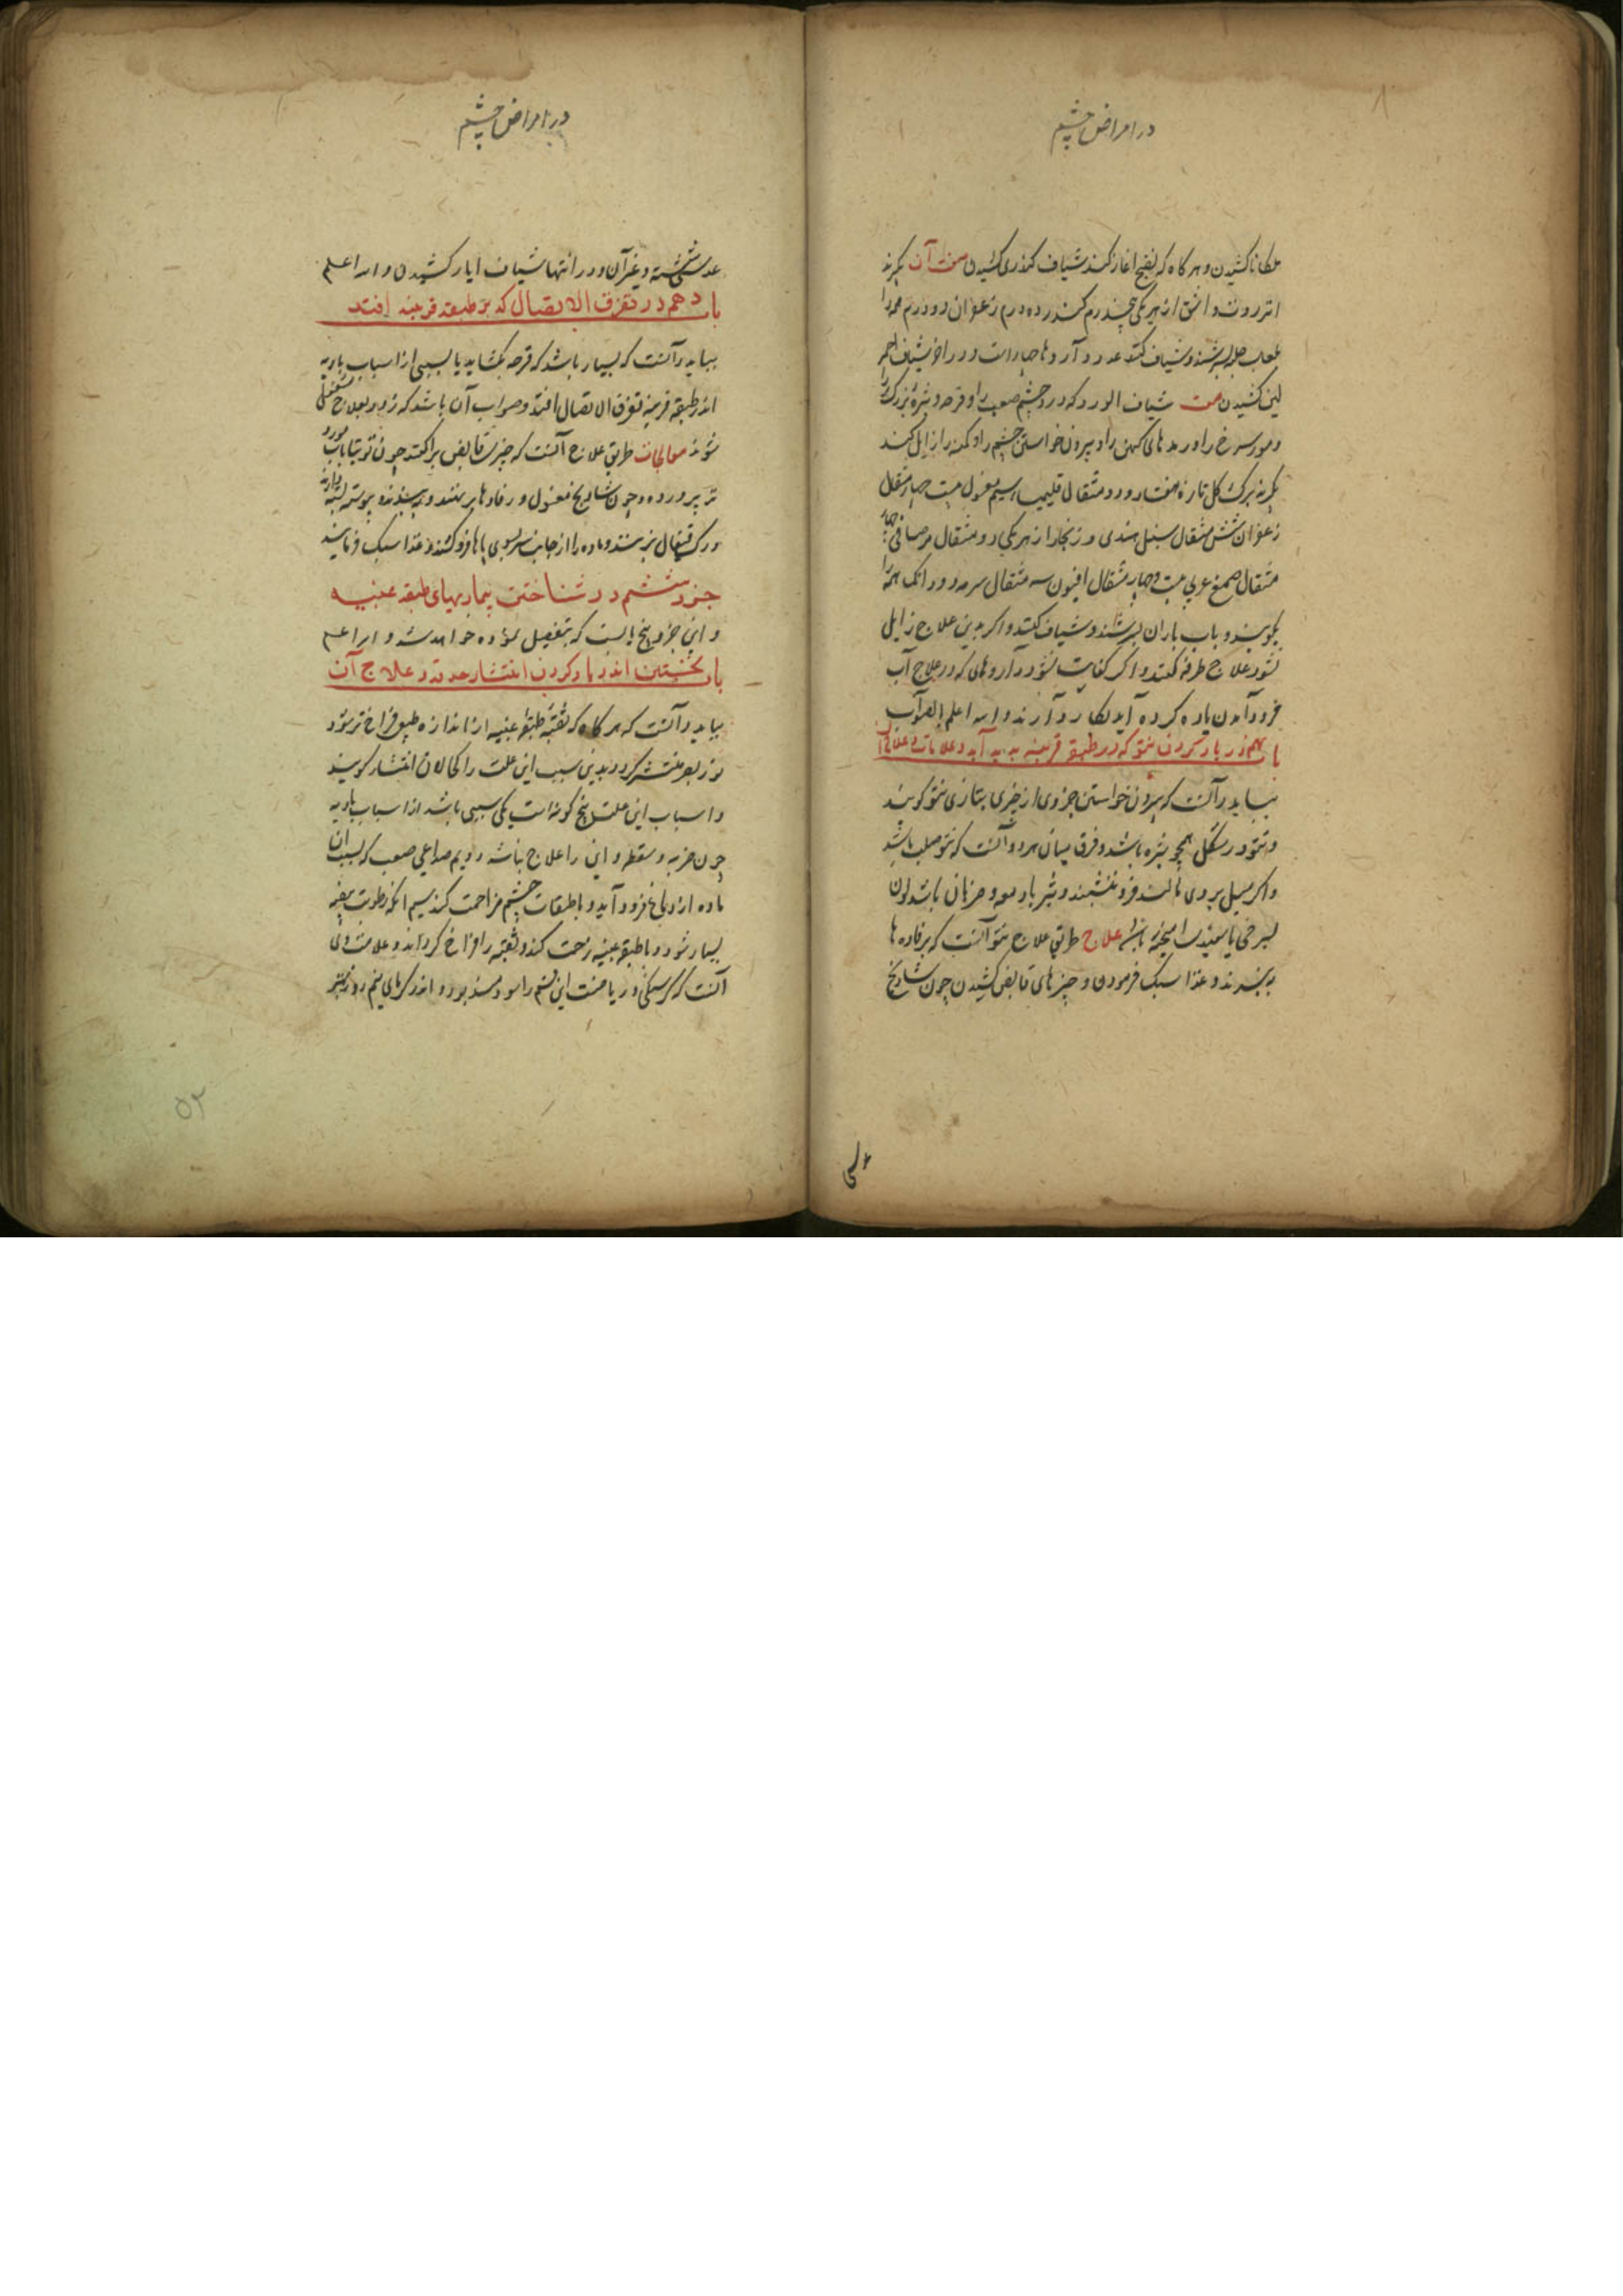 در امراض چشم
ملکانا کشیدن و هر کاه که نضج اغاز کند شیاف کندری کشیدن صفت آن بکیرند
انزروت و اشق از هر یکی درم کندر ده درم زعفران دو درم همه را
بلعاب حلبه بسرشند و شیاف کنند و در آخر شیاف احمر
لین کشیدن صفت شیاف الورد که درد چشم صعب را و قرحه و بثره بزرک را
و مورسرخ را و رمدهای کهن را و بیرون خواستن چشم را و کمنه را زایل کند
بکیرند برک کل تازه هفتاد و دو مثقال قلیمیا سیم مغسول بیست چهار مثقال
زعفران شش مثقال سنبل هندی و زنجار از هر یکی دو مثقال مر صافی چهار
مثقال صمغ عربی بیست و چهار مثقال افیون سه مثقال سرمه دو دانک همه را
بکوبند و باب باران بسرشند و شیاف کنند و اکر بدین علاج زایل
نشود علاج طرفه کنند و اکر کفایت نشود داروهای که در علاج آب
فرود آمدن یاد کرده آید بکار دارند و الله اعلم بالصواب
باب نهم در یاد کردن نتو که در طبقه قرنیه پدید آید و علامات و علاج آن
بباید دانست که بیرون خواستن جزوی از چیزی بتازی نتو کویند
و نتو در شکل همچو بثره باشد و فرق میان هر دو آنست که نتو صلب باشد
و اکر میل بر وی مالند فرو ننشیند و بثر با دمعه و ضربان باشد و لون
بسرخی یا سپیدی آمیخته باشد علاج طریق علاج نتو آنست که برفاده ها
ببندند و غذا سبک فرمودن و چیزهای قابض کشیدن چون شادنج
در امراض چشم
عدسی شسته و غیر آن و در انتها شیاف ابار کشیدن و الله اعلم
باب دهم در تفرق الاتصال که بر طبقه قرنیه افتد
بباید دانست که بسیار باشد که قرحه بکشاید یا بسببی از اسباب بادیه
اندر طبقه قرنیه تفرق الاتصال افتد و صواب آن باشد که زود بعلاج مشغول
شوند معالجات طریق علاج آنست که چیزی قابض براکنند چون توتیا باب مورد
تر پرورده و چون شادنج مغسول و رفادها بر نهند و ببندند و پیوسته بسته دارند
و رک قیفال بزنند و ماده را از جانب سر بسوی پاها فرو کشند و غذا سبک فرمایند
جزو ششم در شناختن بیماریهای طبقه عنبیه
و این جزو پنج بابست که بتفصیل نموده خواهد شد و الله اعلم
باب نخستین اندر یاد کردن انتشار حدقه و علاج آن
بباید دانست که هر کاه که ثقبه طبقه عنبیه از اندازه طبیعی فراخ تر شود
نور بصر منتشر کردد بدین سبب این علت را کحالان انتشار کویند
و اسباب این علت پنج کونه است یکی سببی باشد از اسباب بادیه
چون ضربه و سقطه و این را علاج نباشد دویم صداعی صعب که بسبب آن
ماده از دماغ فرود آید و با طبقات چشم مزاحمت کند سیم آنکه رطوبت بیضیه
بسیار شود و با طبقه عنبیه زحمت کند و ثقبه را فراخ کرداند و علامت وی
آنست که کرسنکی و ریاضت این قسم را سودمند بود و اندر کرمای نیم روز بهتر
۵۲